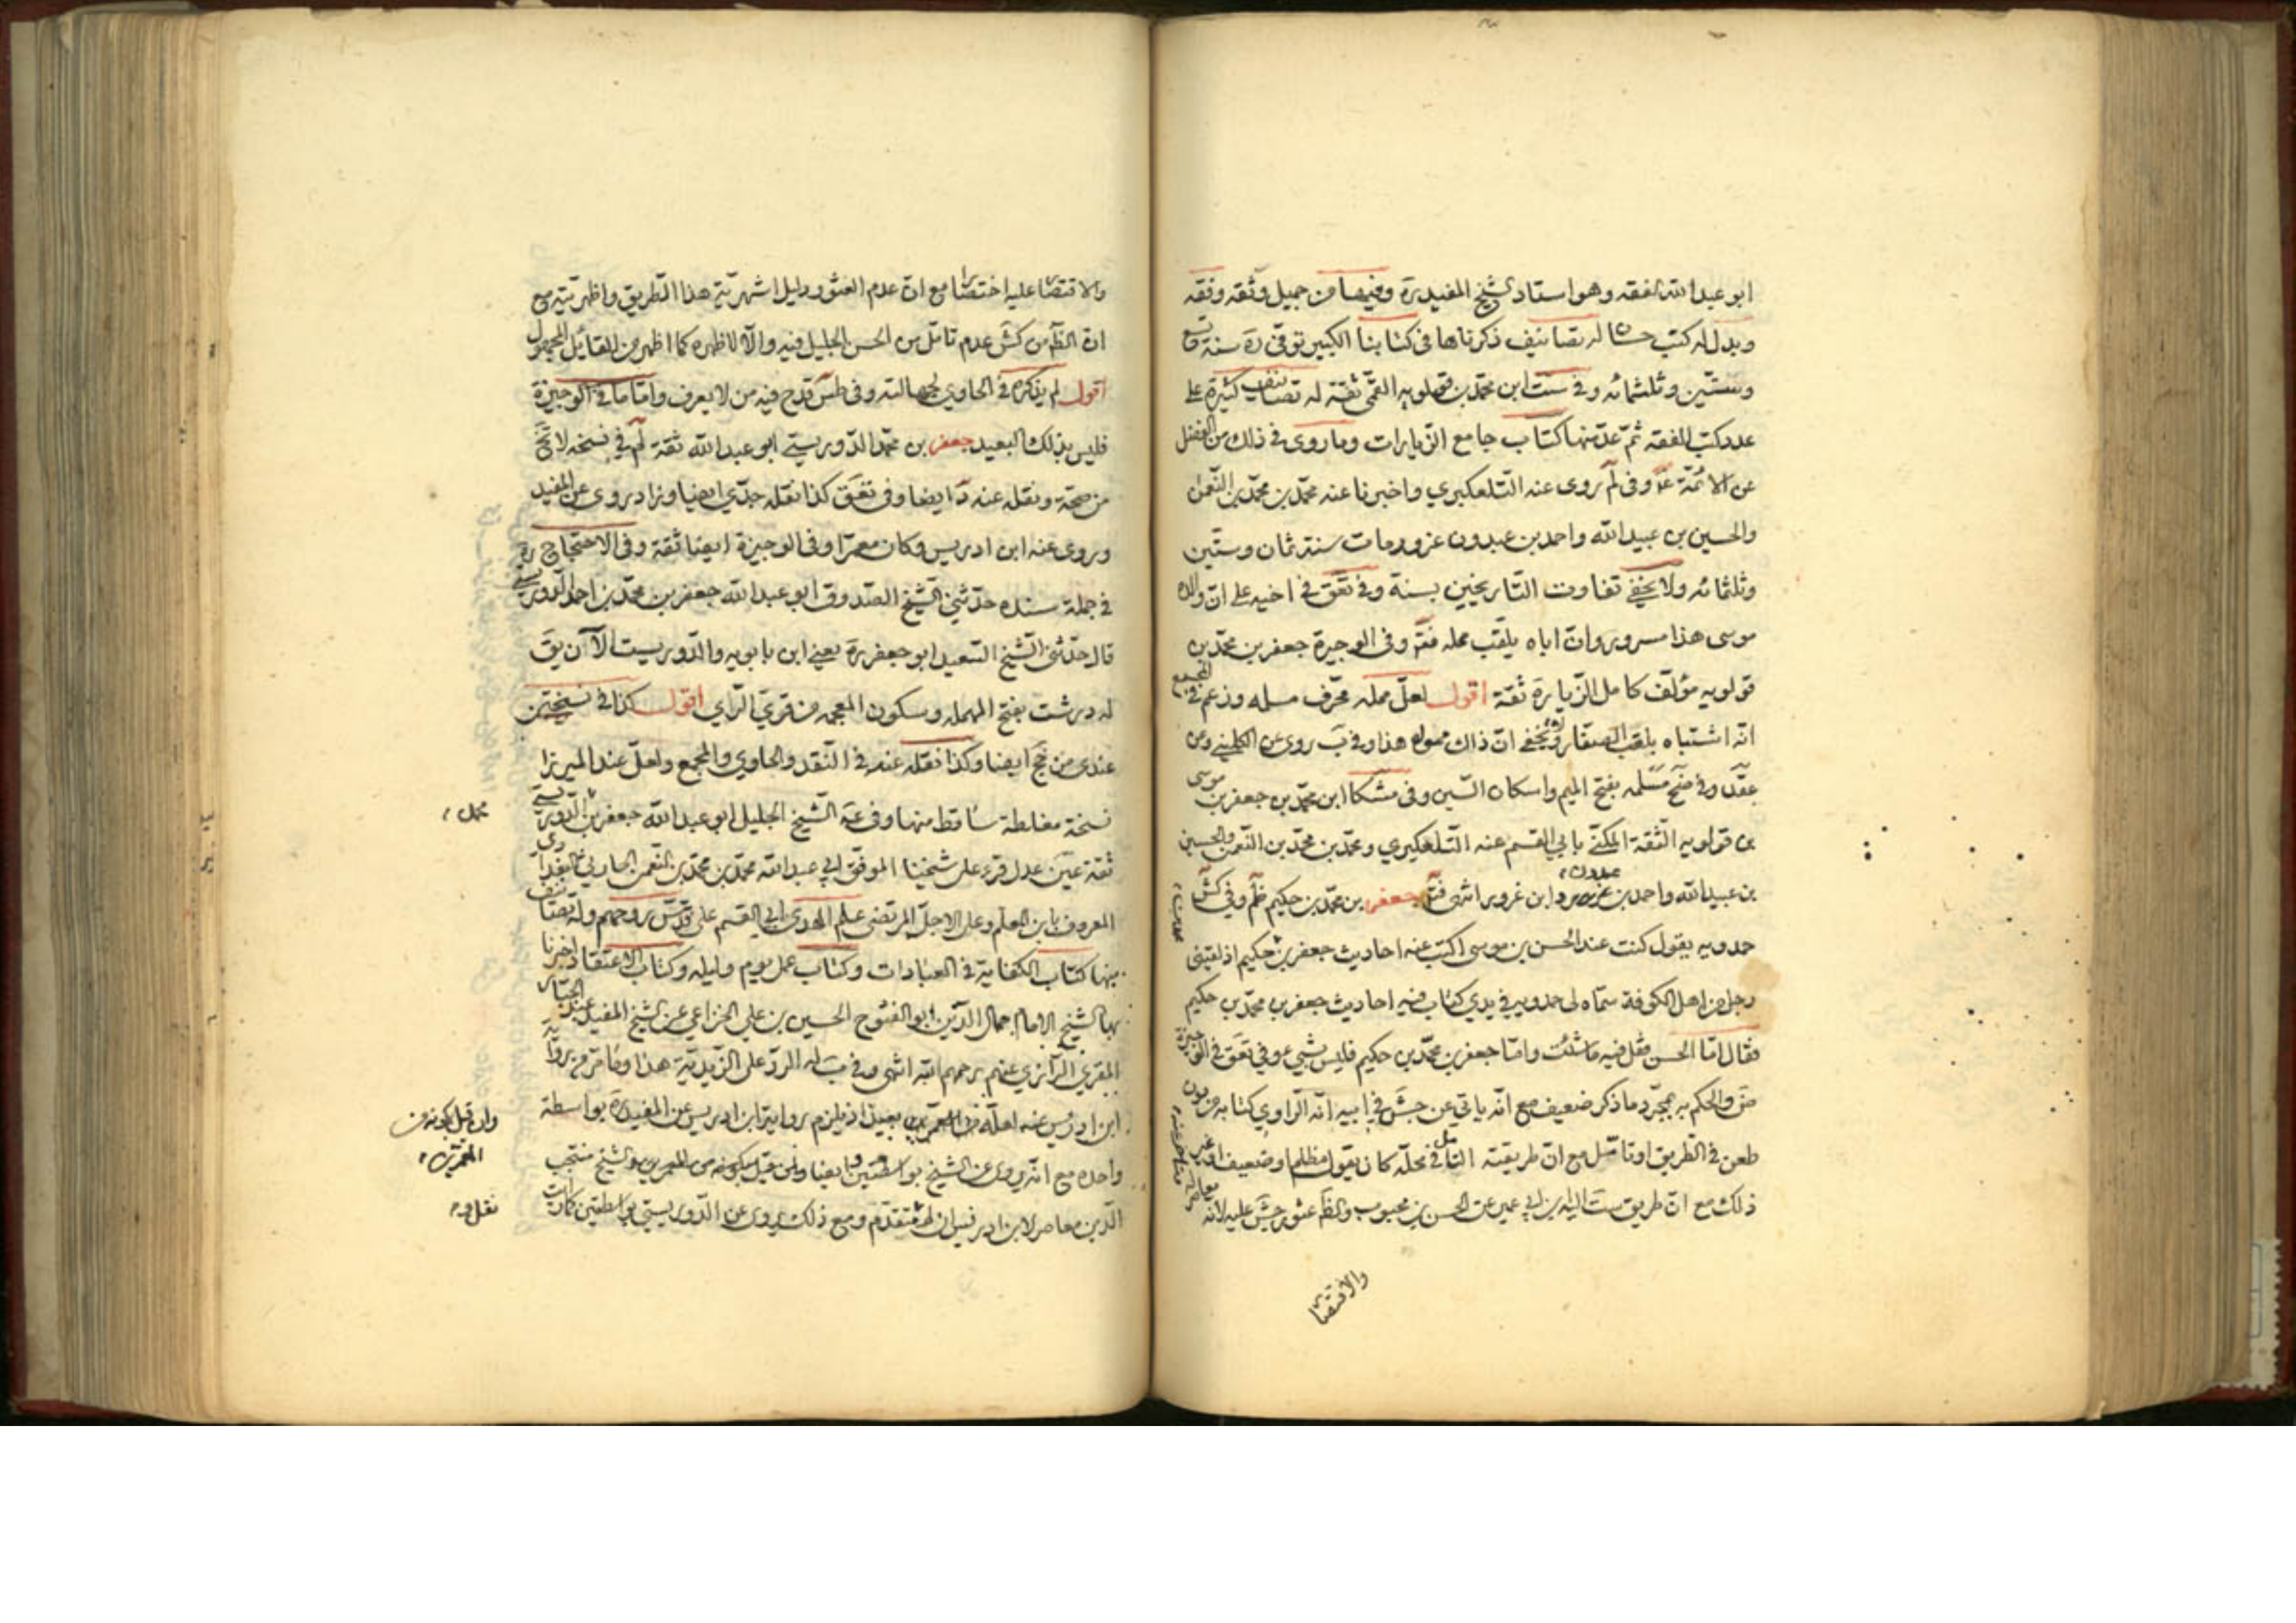 ابو عبد الله الفقه وهو استاد الشيخ المفيد ره وفيهما من جميل وثقه وفقه
وبدل له كتب حسان له تصانيف ذكرناها فى كتابنا الكبير توفى ره سنة تسع
وستين وثلثمائه وفى ست ابن محمد بن قولويه القمى ثقة له تصانيف كثيرة على
عدد كتب الفقه ثم عد منها كتاب جامع الزيارات وما روى فى ذلك من الفضل
عن الائمة ع وفى لم روى عنه التلعكبري واخبرنا عنه محمد بن محمد بن النعمن
والحسين بن عبيد الله واحمد بن عبدون عزور ومات سنة ثمان وستين
وثلثمائه ولا يخفى تفاوت التاريخين بسنة وفى تعق فى اخيه على ان والده
موسى هذا مسرور وان اباه يلقب مملة فتم وفى الوجيزة جعفر بن محمد بن
قولويه مؤلف كامل الزيارة ثقة اقول لعل مملة محرف مسلمه وزعم فى المجمع
انه اشتباه بلقب الصفار ولا يخفى ان ذاك مموله هذا وفى ب روى عن الكلينى وعن
عقد وفى ضح مسلمه بفتح الميم واسكان السين وفى مشكا ابن محمد بن جعفر بن موسى
بن قولويه الثقة المكنى بابي القسم عنه التلعكبري ومحمد بن محمد بن النعمن والحسين
بن عبيد الله واحمد بن عبدون وابن غرور انتهى فتم جعفر بن محمد بن حكيم ظم وفي كش
حمدويه يقول كنت عند الحسن بن موسى اكتب عنه احاديث جعفر بن حكيم اذ لقينى
رجل من اهل الكوفة سماه لى حمدويه فى يدي كتاب فيه احاديث جعفر بن محمد بن حكيم
فقال اما الحسن فقل فيه ما شئت واما جعفر بن محمد بن حكيم فليس بشيء وفي تعق فى الوجيزة
ض والحكم به بمجرد ما ذكر ضعيف مع انه ياتي عن جش في ابيه انه الراوي كتابه من دون
طعن فى الطريق او تامل مع ان طريقته التامل فى محله كان يقول مظلم او ضعيف او غير
ذلك مع ان طريق ست اليه ابن ابي عمير عن الحسن بن محبوب والظ عثور جش عليه لانه
والاقتصا
والاقتصا عليه اختصا مع ان عدم العثور دليل اشهرية هذا الطريق واظهريته مع
ان الظ من كش عدم تامل من الحسن الجليل فيه والا لاظهره كما اظهر من القائل المجهول
اقول لم يذكره فى الحاوي لجهالته وفى طس قدح فيه من لا يعرف واما ما فى الوجيزة
فليس بذلك البعيد جعفر بن محمد الدوريستي ابو عبد الله ثقة لم فى نسخه لا تخ
من صحة ونقله عنه د ايضا وفى تعق كذا نقله جدي ايضا وزاد يروى عن المفيد
وروى عنه ابن ادريس وكان معمرا وفى الوجيزة ايضا ثقة وفى الاحتجاج ره
فى جملة سنده حدثني الشيخ الصدوق ابو عبد الله جعفر بن محمد بن احمد الدوريستي
قال حدثني الشيخ السعيد ابو جعفر ره يعني ابن بابويه والدوريست الآن يق
له درشت بفتح المهمله وسكون المعجمه من قرى الراي اقول كذا فى نسختين
عندى من جخ ايضا وكذا نقله عنه فى النقد والحاوي والمجمع ولعل عند الميرزا
نسخة مغلطة ساقط منها وفى عه الشيخ الجليل ابو عبد الله جعفر بن الدوريستي
محمد
ثقة عين عدل قرء على شيخنا الموفق ابي عبد الله محمد بن محمد بن النعمن الحارثي البغدادي
المعروف بابن المعلم وعلى الاجل المرتضى علم الهدى ابي القسم على قدس روحهم وله تصانيف
منها كتاب الكفاية فى العبادات وكتاب عمل يوم وليله وكتاب الاعتقاد اخبرنا
بها الشيخ الامام جمال الدين ابو الفتوح الحسين بن علي الخزاعي عن الشيخ المفيد عبد الجبار
المقرى الرازي عنهم رحمهم الله انتهى وفى ب له الرد على الزيدية هذا وما مر من رواية
ابن ادريس عنه لعله بعيد اذ يلزم رواية ابن ادريس عن المفيد ره بواسطة
وان قيل بكونه من
المعمرين
واحده مع انه يروى عن الشيخ بواسطتين ايضا والشيخ منتجب
الدين معاصر لابن ادريس ان لم يتقدم ومع ذلك يروى عن الدوريستي بواسطتين
نقل ره